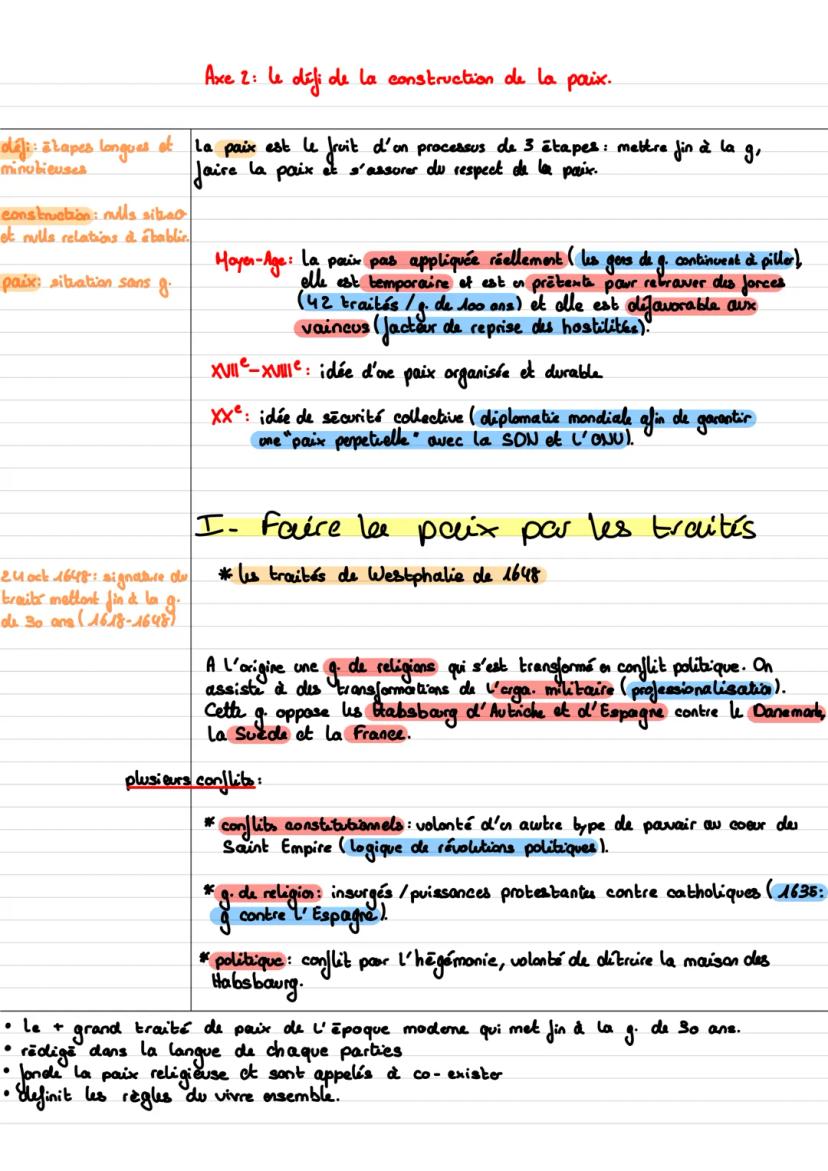 Axe 2: le défi de la construction de la paix.
défi: étapes longues et
minutieuses
construction: nvlls situao
et nvlls relations à établir.
paix: situation sans g.
La paix est le fruit d'un processus de 3 étapes: mettre fin à la g,
faire la paix et s'assurer du respect de la paix.
Moyen-Age: la paix pas appliquée réellement (les gens de g. continuent à piller),
elle est temporaire et est un prétexte pour retrouver des forces
(42 traités / g. de 100 ans) et elle est défavorable aux
vaincus (facteur de reprise des hostilités).
XVIIe-XVIIIe: idée d'une paix organisée et durable
XXe: idée de sécurité collective (diplomatie mondiale afin de garantir
une "paix perpetuelle" avec la SDN et l'ONU).
I- Faire la paix par les traités
24 oct 1648: signature du
traité mettant fin à la g.
de 30 ans (1618-1648)
* les traités de Westphalie de 1648
A l'origine une g. de religions qui s'est transformé en conflit politique. On
assiste à des transformations de l'orga. militaire (professionalisation).
Cette g. oppose les Habsbourg d'Autriche et d'Espagne contre le Danemark,
la Suède et la France.
plusieurs conflits:
* conflits constitutionnels: volonté d'un autre type de pouvoir au coeur du
Saint Empire (logique de révolutions politiques).
* g. de religion: insurgés / puissances protestantes contre catholiques (1635:
g contre l'Espagne).
* politique: conflit pour l'hégémonie, volonté de détruire la maison des
Habsbourg.
• Le + grand traité de paix de l'époque moderne qui met fin à la g. de 30 ans.
• rédigé dans la langue de chaque parties
• fonde la paix religieuse et sont appelés à co-exister
• définit les règles du vivre ensemble.